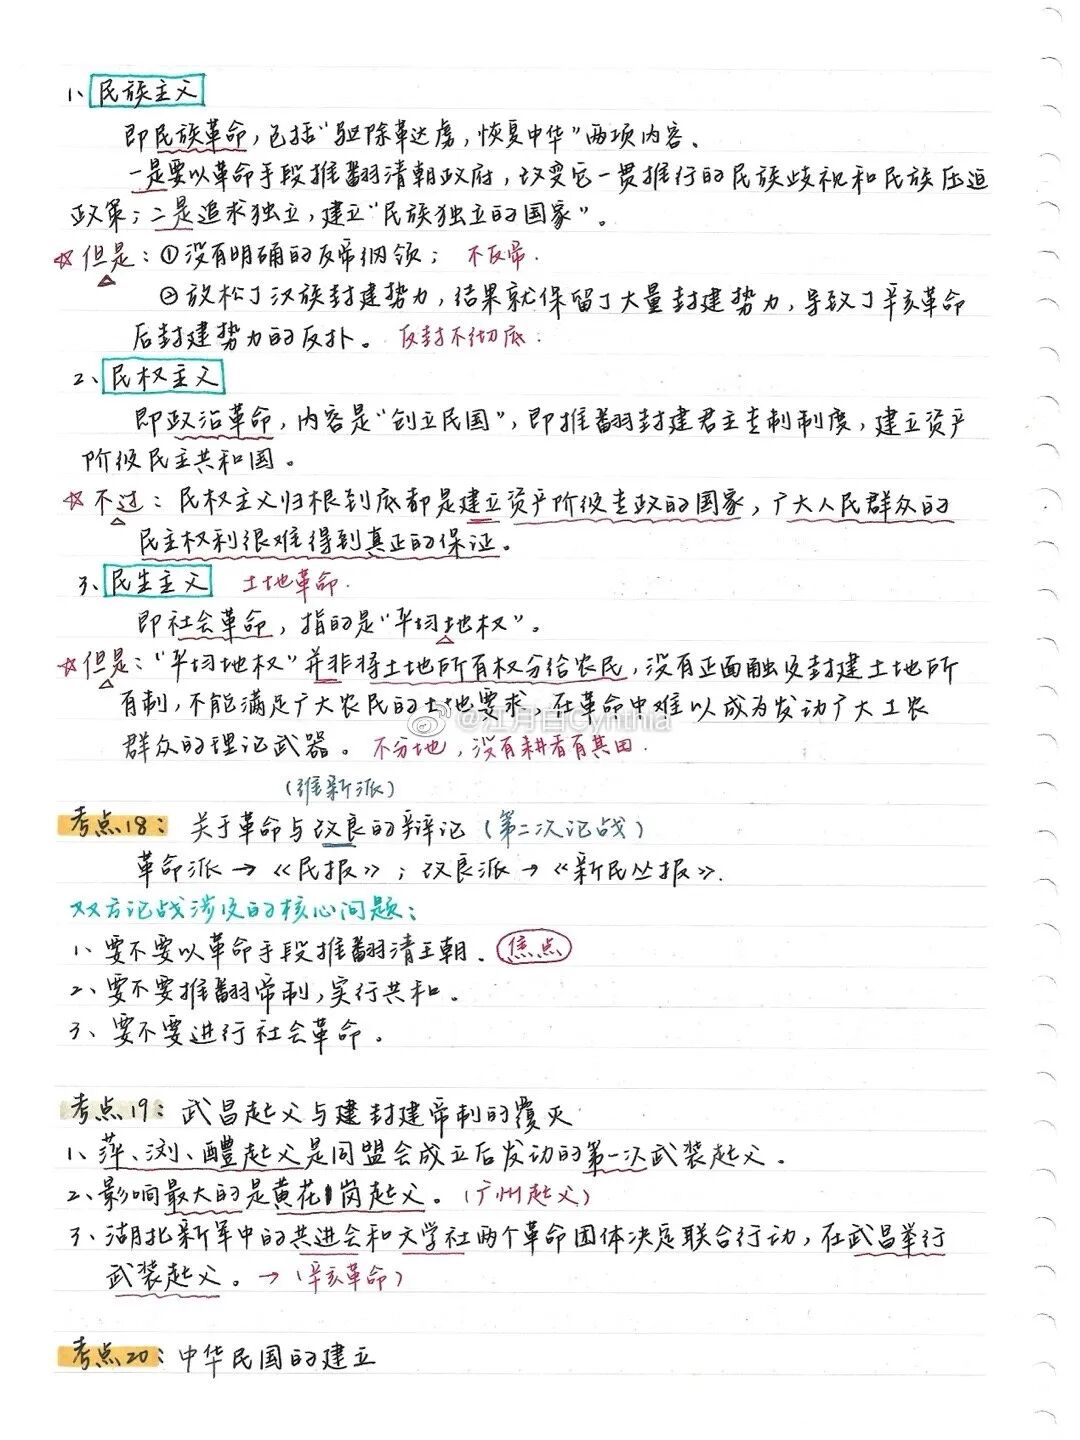 1、民族主义
即民族革命，包括“驱除革达虏，恢复中华”两项内容。
一是要以革命手段推翻清朝政府，改变它一贯推行的民族歧视和民族压迫
政策；二是追求独立，建立“民族独立的国家”。
☆但是：①没有明确的反帝纲领；不反帝.
②放松了汉族封建势力，结果就保留了大量封建势力，导致了辛亥革命
后封建势力的反扑。反封不彻底.
2、民权主义
即政治革命，内容是“创立民国”，即推翻封建君主专制制度，建立资产
阶级民主共和国。
☆不过：民权主义归根到底都是建立资产阶级专政的国家，广大人民群众的
民主权利很难得到真正的保证。
3、民生主义 土地革命.
即社会革命，指的是“平均地权”。
☆但是：“平均地权”并非将土地所有权分给农民，没有正面触及封建土地所
有制，不能满足广大农民的土地要求，在革命中难以成为发动广大工农
@江月白Cynthia
群众的理论武器。不分地，没有耕者有其田.
（维新派）
考点18：关于革命与改良的辩论（第二次论战）
革命派→《民报》；改良派→《新民丛报》.
双方论战涉及的核心问题：
1、要不要以革命手段推翻清王朝.焦点
2、要不要推翻帝制，实行共和.
3、要不要进行社会革命.
考点19：武昌起义与建封建帝制的覆灭
1、萍、浏、醴起义是同盟会成立后发动的第一次武装起义.
2、影响最大的是黄花岗起义。（广州起义）
3、湖北新军中的共进会和文学社两个革命团体决定联合行动，在武昌举行
武装起义。→（辛亥革命）
考点20：中华民国的建立